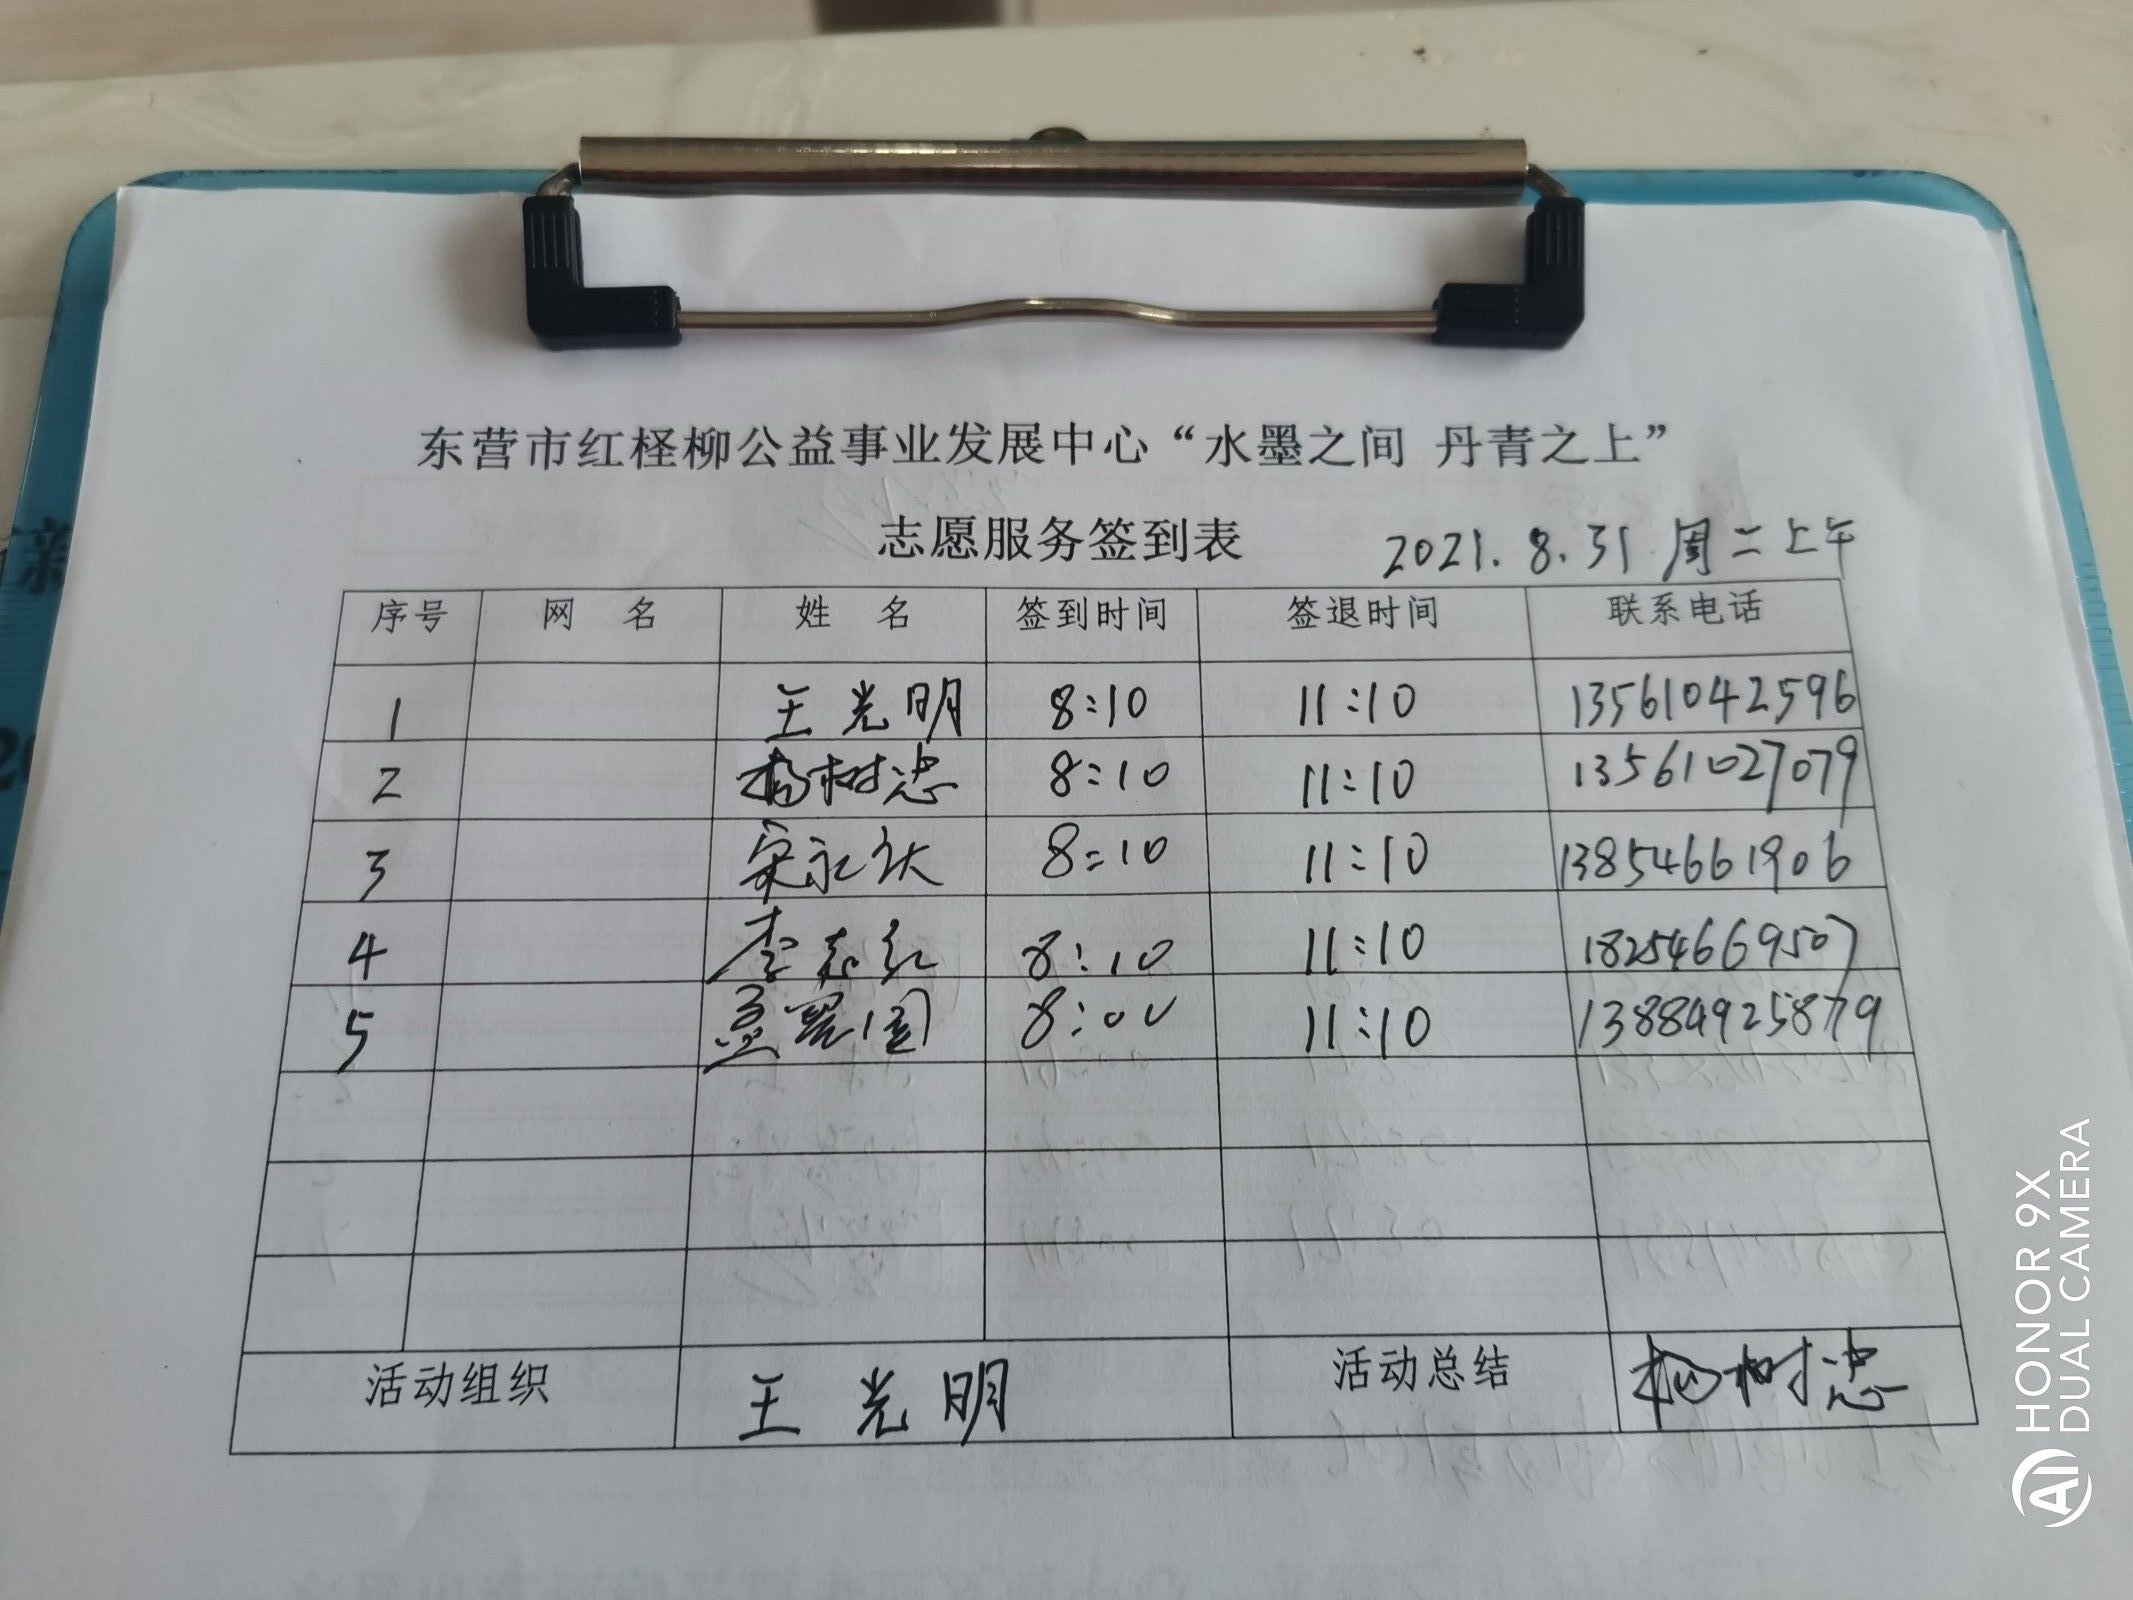 东营市红柽柳公益事业发展中心“水墨之间 丹青之上”
志愿服务签到表 2021.8.31 周二上午
序号 网 名 姓 名 签到时间 签退时间 联系电话
1 王光明 8:10 11:10 13561042596
2 杨树忠 8:10 11:10 13561027079
3 宋永 8:10 11:10 13854661906
4 李 红 8:10 11:10 18254669507
5 孟 国 8:00 11:10 13884925879
活动组织 王光明 活动总结 杨树忠
HONOR 9X
DUAL CAMERA
AI